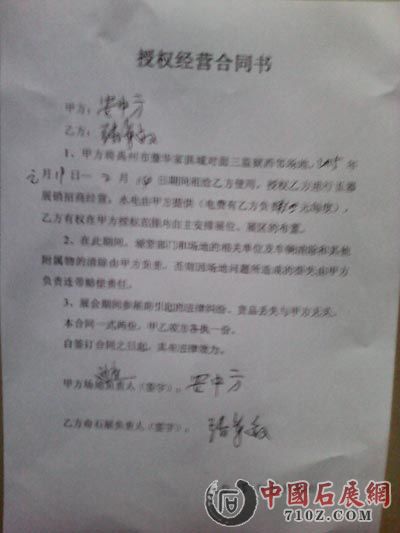 授权经营合同书
甲方：安中方
乙方：
1、甲方将禹州市 对面三监狱西邻场地，2015年
月19日—2月 日期间租给乙方使用，授权乙方进行玉器
展销招商经营，水电由甲方提供（电费有乙方负 元每度），
乙方有权在甲方授权范围内自主安排展位、展区的布置。
2、在此期间，城管部门和场地的相关单位及车辆清除和其他
附属物的清除由甲方负责，否则因场地问题所造成的损失由甲方
负责连带赔偿责任。
3、展会期间参展商引起的法律纠纷、货品丢失与甲方无关。
本合同一式两份，甲乙双方各执一份。
自签订合同之日起，具有法律效力。
甲方场地负责人（签字）：安中方
乙方奇石展负责人（签字）：
中國石展網
710Z.COM